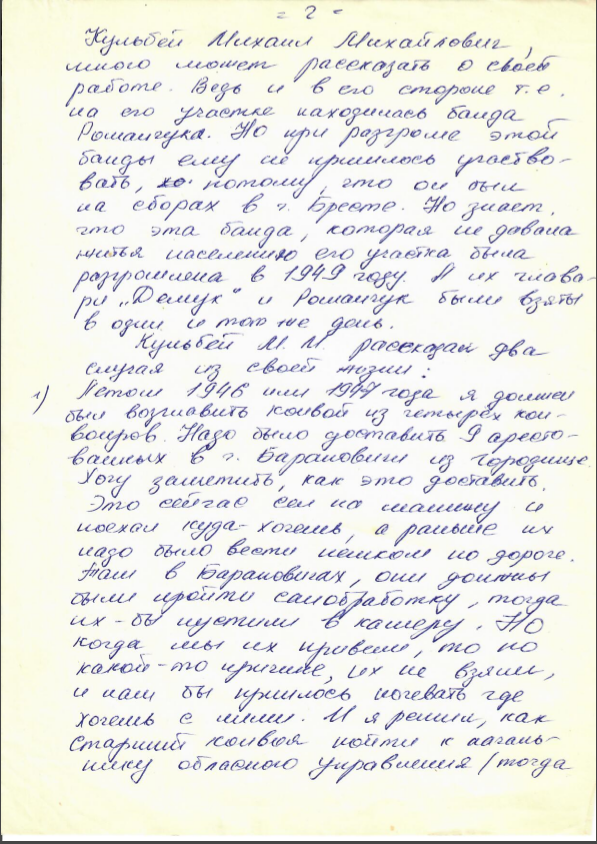 = 2 =
Кульбей Михаил Михайлович,
много может рассказать о своей
работе. Ведь и в его стороне т.е.
на его участке находилась банда
Романчука. Но при разгроме этой
банды ему не пришлось участво-
вать, потому, что он был
на сборах в г. Бресте. Но знает,
что эта банда, которая не давала
житья населению его участка была
разгромлена в 1949 году. А их глава-
ри „Демук" и Романчук были взяты
в один и тот же день.
Кульбей М. М. рассказал два
случая из своей жизни:
1) Летом 1946 или 1947 года я должен
был возглавить конвой из четырёх кон-
воиров. Надо было доставить 9 аресто-
ванных в г. Барановичи из Городище.
Хочу заметить, как это доставить.
Это сейчас сел на машину и
поехал куда-хочешь, а раньше их
надо было вести пешком по дороге.
Там в Барановичах, они должны
были пройти санобработку, тогда
их-бы пустили в камеру. Но
когда мы их привели, то по
какой-то причине, их не взяли,
и нам бы пришлось ночевать где
хочешь с ними. И я решил, как
старший конвоя пойти к началь-
нику обласного управления /тогда